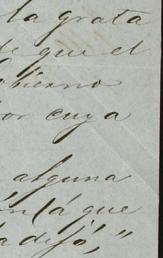 la grata
de que el
obierno
por cuya
alguna
que